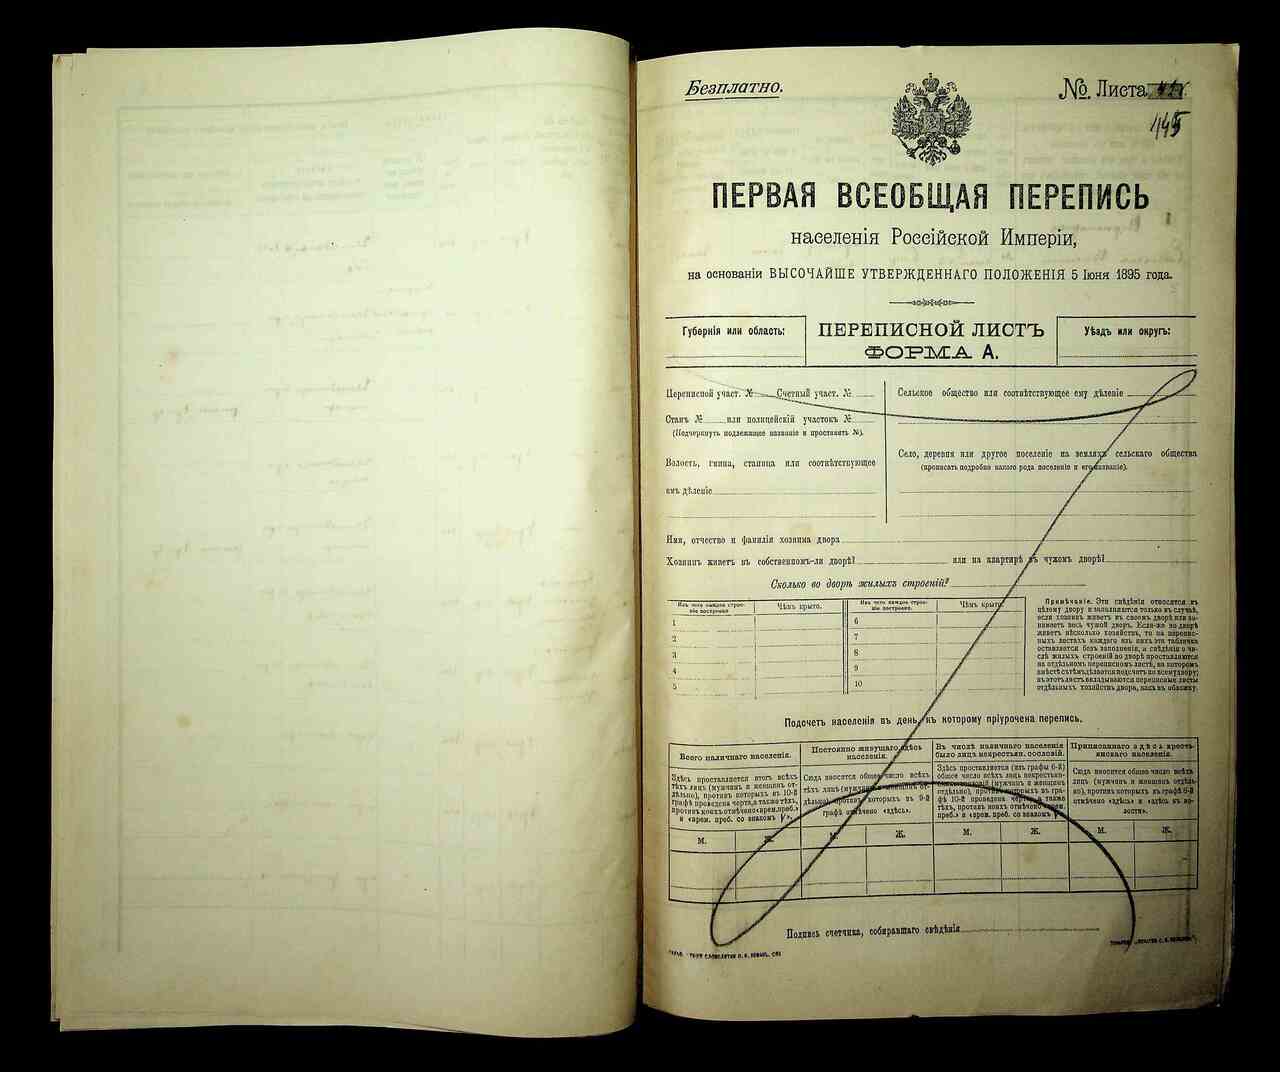 Безплатно.
№ Листа
145
ПЕРВАЯ ВСЕОБЩАЯ ПЕРЕПИСЬ
населенія Россійской Имперіи,
на основаніи ВЫСОЧАЙШЕ УТВЕРЖДЕННАГО ПОЛОЖЕНІЯ 5 Іюня 1895 года.
Губернія или область:
ПЕРЕПИСНОЙ ЛИСТЪ
ФОРМА А.
Уѣздъ или округъ:
Переписной участ. № Счетный участ. №
Станъ № или полицейскій участокъ №
(Подчеркнуть подлежащее названіе и проставить №).
Волость, гмина, станица или соотвѣтствующее
имъ дѣленіе
Сельское общество или соотвѣтствующее ему дѣленіе
Село, деревня или другое поселеніе на земляхъ сельскаго общества
(прописать подробно какого рода поселеніе и его названіе).
Имя, отчество и фамилія хозяина двора
Хозяинъ живетъ въ собственномъ-ли дворѣ? или на квартирѣ въ чужомъ дворѣ?
Сколько во дворѣ жилыхъ строеній?
Изъ чего каждое строе-
ніе построено
Чѣмъ крыто.
1
2
3
4
5
Изъ чего каждое строе-
ніе построено.
Чѣмъ крыто.
6
7
8
9
10
Примѣчаніе. Эти свѣдѣнія относятся къ
цѣлому двору и заполняются только въ случаѣ,
если хозяинъ живетъ въ своемъ дворѣ или за-
нимаетъ весь чужой дворъ. Если-же во дворѣ
живетъ нѣсколько хозяйствъ, то на перепис-
ныхъ листахъ каждаго изъ нихъ эта табличка
оставляется безъ заполненія, а свѣдѣнія о чи-
слѣ жилыхъ строеній во дворѣ проставляются
на отдѣльномъ переписномъ листѣ, на которомъ
вмѣстѣ съ тѣмъ дѣлается подсчетъ по всему двору;
въ этотъ листъ вкладываются переписные листы
отдѣльныхъ хозяйствъ двора, какъ въ обложку.
Подсчетъ населенія въ день, къ которому пріурочена перепись.
Всего наличнаго населенія.
Здѣсь проставляется итогъ всѣхъ
тѣхъ лицъ (мужчинъ и женщинъ от-
дѣльно), противъ которыхъ въ 10-й
графѣ проведена черта, а также тѣхъ,
противъ коихъ отмѣчено «врем. преб.»
и «врем. преб. со знакомъ V».
М. Ж.
Постоянно живущаго здѣсь
населенія.
Сюда вносится общее число всѣхъ
тѣхъ лицъ (мужчинъ и женщинъ от-
дѣльно), противъ которыхъ въ 9-й
графѣ отмѣчено «здѣсь».
М. Ж.
Въ числѣ наличнаго населенія
было лицъ некрестьян. сословій.
Здѣсь проставляется (изъ графы 6-й)
общее число всѣхъ лицъ некрестьян-
скихъ сословій (мужчинъ и женщинъ
отдѣльно), противъ которыхъ въ гра-
фѣ 10-й проведена черта, а также
тѣхъ, противъ коихъ отмѣчено «врем.
преб.» и «врем. преб. со знакомъ V».
М. Ж.
Приписаннаго здѣсь кресть-
янскаго населенія.
Сюда вносится общее число всѣхъ
лицъ (мужчинъ и женщинъ отдѣль-
но), противъ которыхъ въ графѣ 6-й
отмѣчено «здѣсь» и «здѣсь въ во-
лости».
М. Ж.
Подпись счетчика, собиравшаго свѣдѣнія